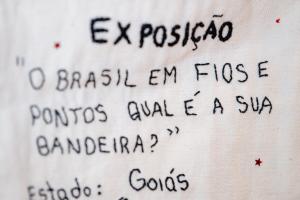 EXPOSIÇÃO
"O BRASIL EM FIOS E
PONTOS QUAL É A SUA
BANDEIRA?"
Estado: GOIÁS